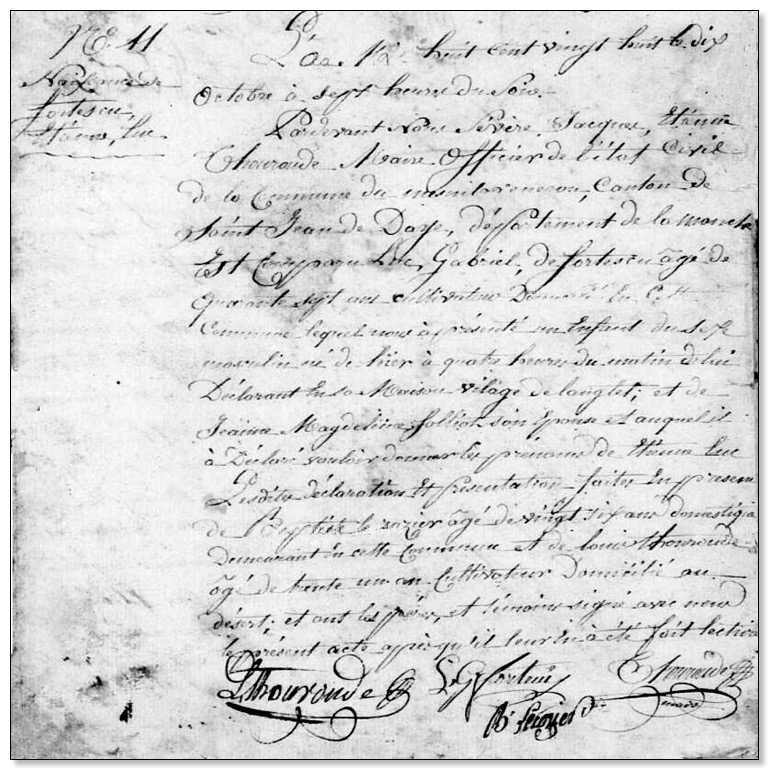 N.E. 11
Naissance de
fortescu,
Etienne, Luc
L'an 1.er huit cent vingt huit le dix
Octobre à sept heure du Soir.
Pardevant Nous Sévère, Jacques, Etienne
Thouroude Maire Officier de l'état Civil
de la Commune du mesnil-veneron, Canton de
Saint Jean de Daye, département de la manche
Est Comparu Luc, Gabriel, de fortescu âgé de
Quarante sept ans cultivateur Demeurant En Cette
Commune lequel nous à présenté un Enfant du sexe
masculin né de hier à quatre heures du matin de lui
Déclarant En sa Maison vilage de langlet, et de
Jeanne Magdeleine folliot son Epouse et auquel il
à Déclaré vouloir donner les prénoms de Etienne Luc
Lesdites déclaration Et présentation faites En présence
de Baptiste le rozier âgé de vingt six ans domestique
Demeurant en cette Commune et de louis thouroude
âgé de trente un an Cultivateur Domicilié au
désert; et ont les père, et témoins signé avec nous
le présent acte après qu'il leur en à été fait lecture
L thouroude
L G fortescu
Thouroude
maire
B.te